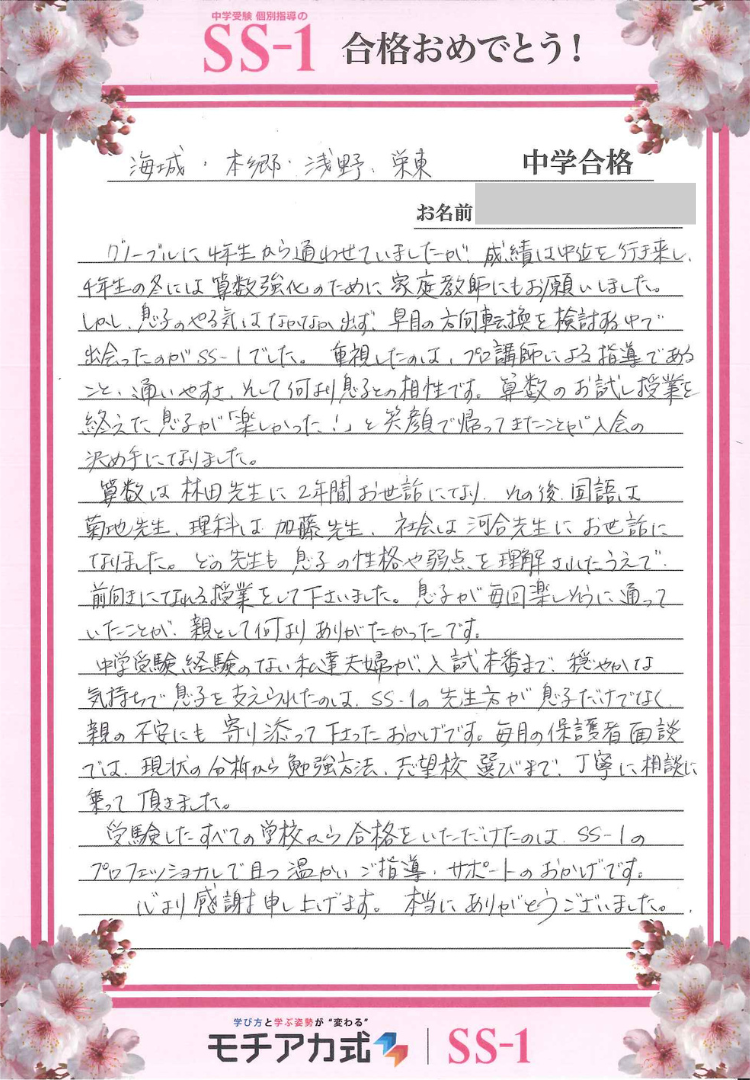 中学受験 個別指導の
SS-1 合格おめでとう!
海城・本郷・浅野・栄東 中学合格
お名前
グノーブルに4年生から通わせていましたが、成績は中位を行き来し、
4年生の冬には算数強化のために家庭教師にもお願いしました。
しかし、息子のやる気はなかなか出ず、早目の方向転換を検討する中で
出会ったのがSS-1でした。重視したのは、プロ講師による指導である
こと、通いやすさ、そして何より息子との相性です。算数のお試し授業を
終えた息子が「楽しかった!」と笑顔で帰ってきたことが入会の
決め手になりました。
算数は林田先生に2年間お世話になり、その後、国語は
菊地先生、理科は加藤先生、社会は河合先生にお世話に
なりました。どの先生も息子の性格や弱点を理解されたうえで、
前向きになれる授業をして下さいました。息子が毎回楽しそうに通って
いたことが、親として何よりありがたかったです。
中学受験経験のない私達夫婦が、入試本番まで、穏やかな
気持ちで息子を支えられたのは、SS-1の先生方が息子だけでなく
親の不安にも寄り添って下さったおかげです。毎月の保護者面談
では、現状の分析から勉強方法、志望校選びまで、丁寧に相談に
乗って頂きました。
受験したすべての学校から合格をいただけたのは、SS-1の
プロフェッショナルで且つ温かいご指導・サポートのおかげです。
心より感謝申し上げます。本当にありがとうございました。
学び方と学ぶ姿勢が“変わる”
モチアカ式 SS-1